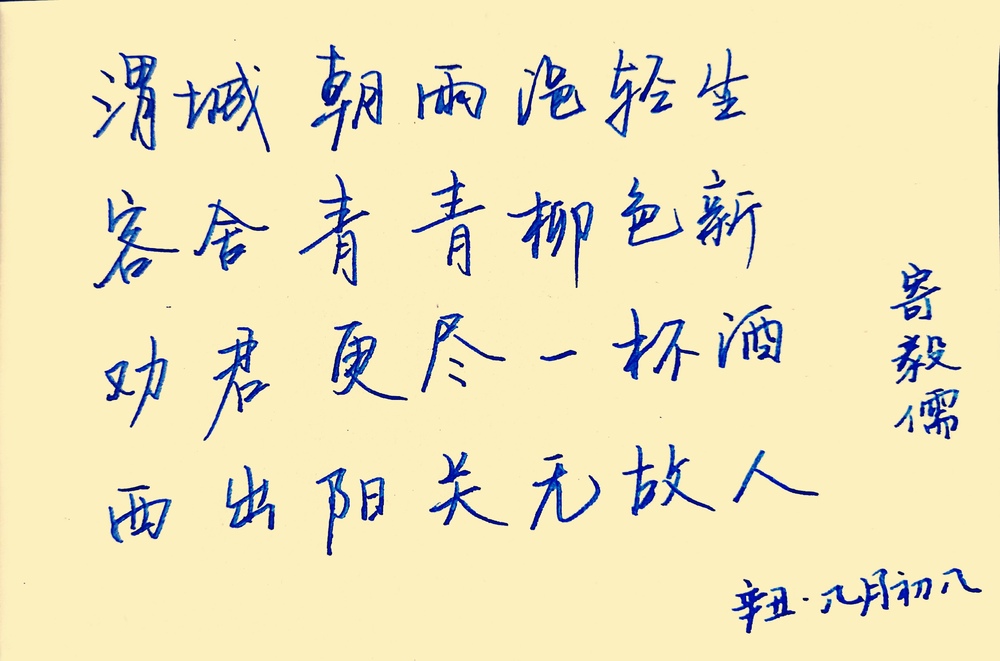 渭城朝雨浥轻尘
客舍青青柳色新
劝君更尽一杯酒
西出阳关无故人
寄毅儒
辛丑·八月初八